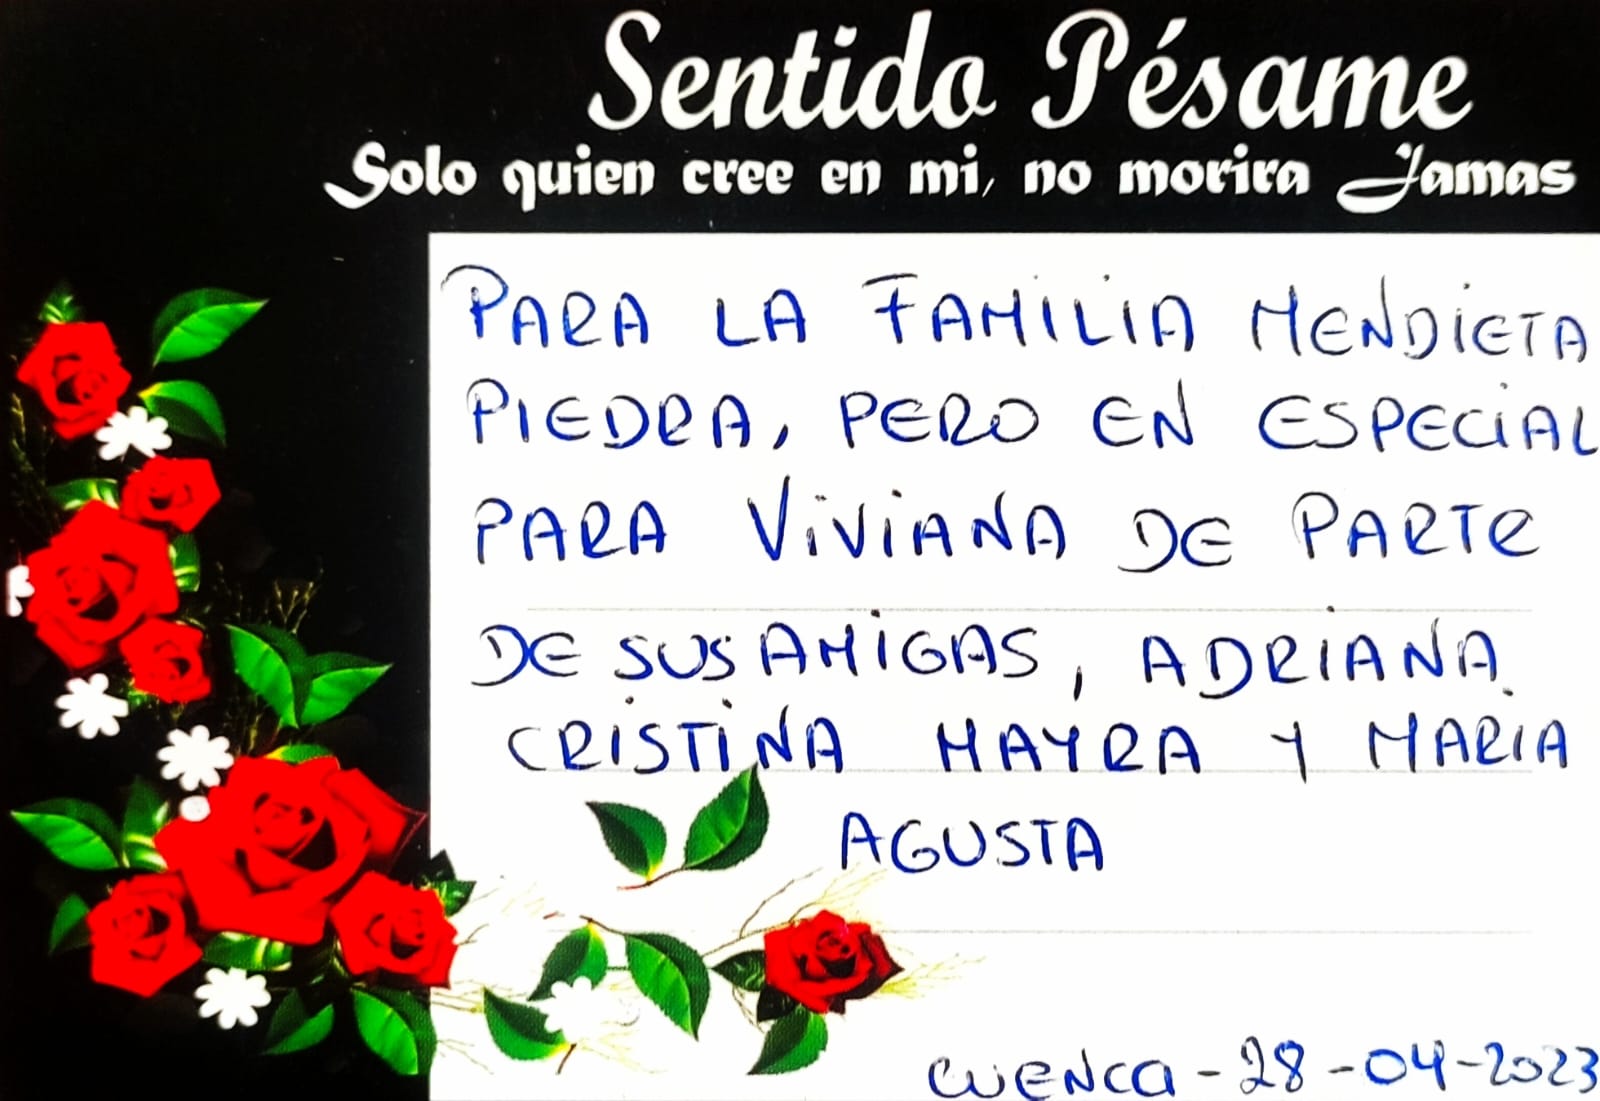 Sentido Pésame
Solo quien cree en mi, no morira Jamas
PARA LA FAMILIA MENDIETA
PIEDRA, PERO EN ESPECIAL
PARA VIVIANA DE PARTE
DE SUS AMIGAS, ADRIANA
CRISTINA MAYRA Y MARIA
AGUSTA
CUENCA - 28 - 04 - 2023